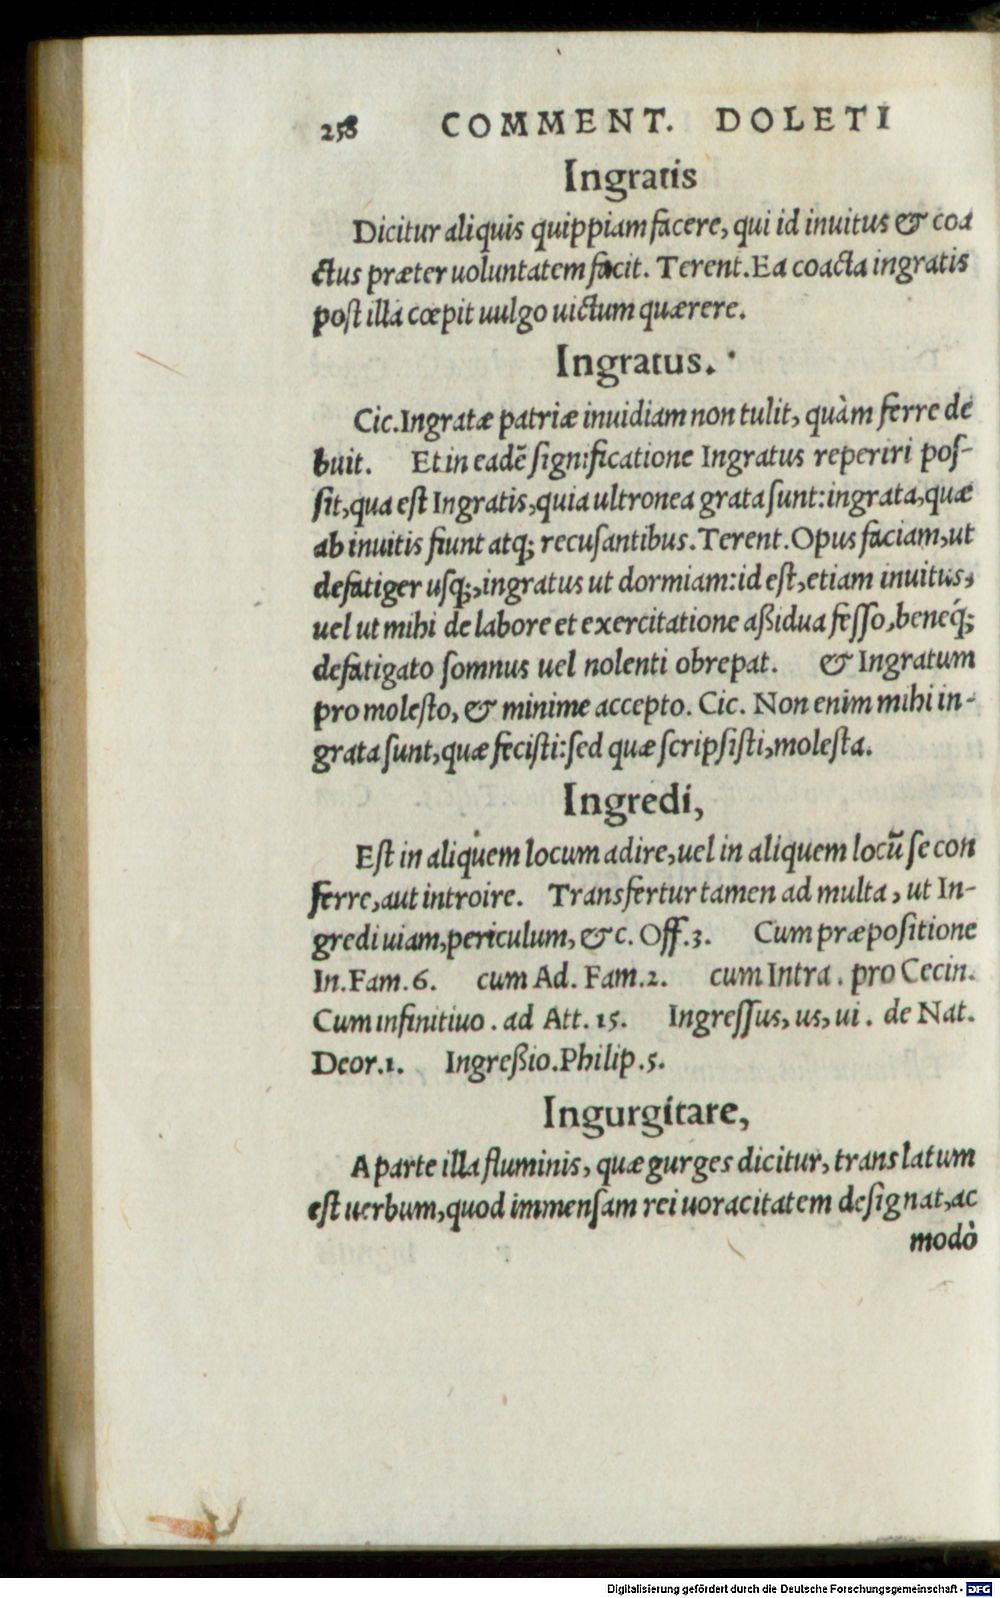 258 COMMENT. DOLETI
Ingratis
Dicitur aliquis quippiam facere, qui id inuitus & coa
ctus præter uoluntatem facit. Terent. Ea coacta ingratis
post illa cœpit uulgo uictum quærere.
Ingratus.
Cic. Ingratæ patriæ inuidiam non tulit, quàm ferre de
buit. Et in eadē significatione Ingratus reperiri pos-
sit, qua est Ingratis, quia ultronea grata sunt: ingrata, quæ
ab inuitis fiunt atq; recusantibus. Terent. Opus faciam, ut
defatiger usq;, ingratus ut dormiam: id est, etiam inuitus,
uel ut mihi de labore et exercitatione aßidua fesso, beneq́;
defatigato somnus uel nolenti obrepat. & Ingratum
pro molesto, & minime accepto. Cic. Non enim mihi in-
grata sunt, quæ fecisti: sed quæ scripsisti, molesta.
Ingredi,
Est in aliquem locum adire, uel in aliquem locū se con
ferre, aut introire. Transfertur tamen ad multa, ut In-
gredi uiam, periculum, &c. Off. 3. Cum præpositione
In. Fam. 6. cum Ad. Fam. 2. cum Intra. pro Cecin.
Cum infinitiuo. ad Att. 15. Ingressus, us, ui. de Nat.
Deor. 1. Ingreßio. Philip. 5.
Ingurgitare,
A parte illa fluminis, quæ gurges dicitur, translatum
est uerbum, quod immensam rei uoracitatem designat, ac
modò
Digitalisierung gefördert durch die Deutsche Forschungsgemeinschaft - DFG